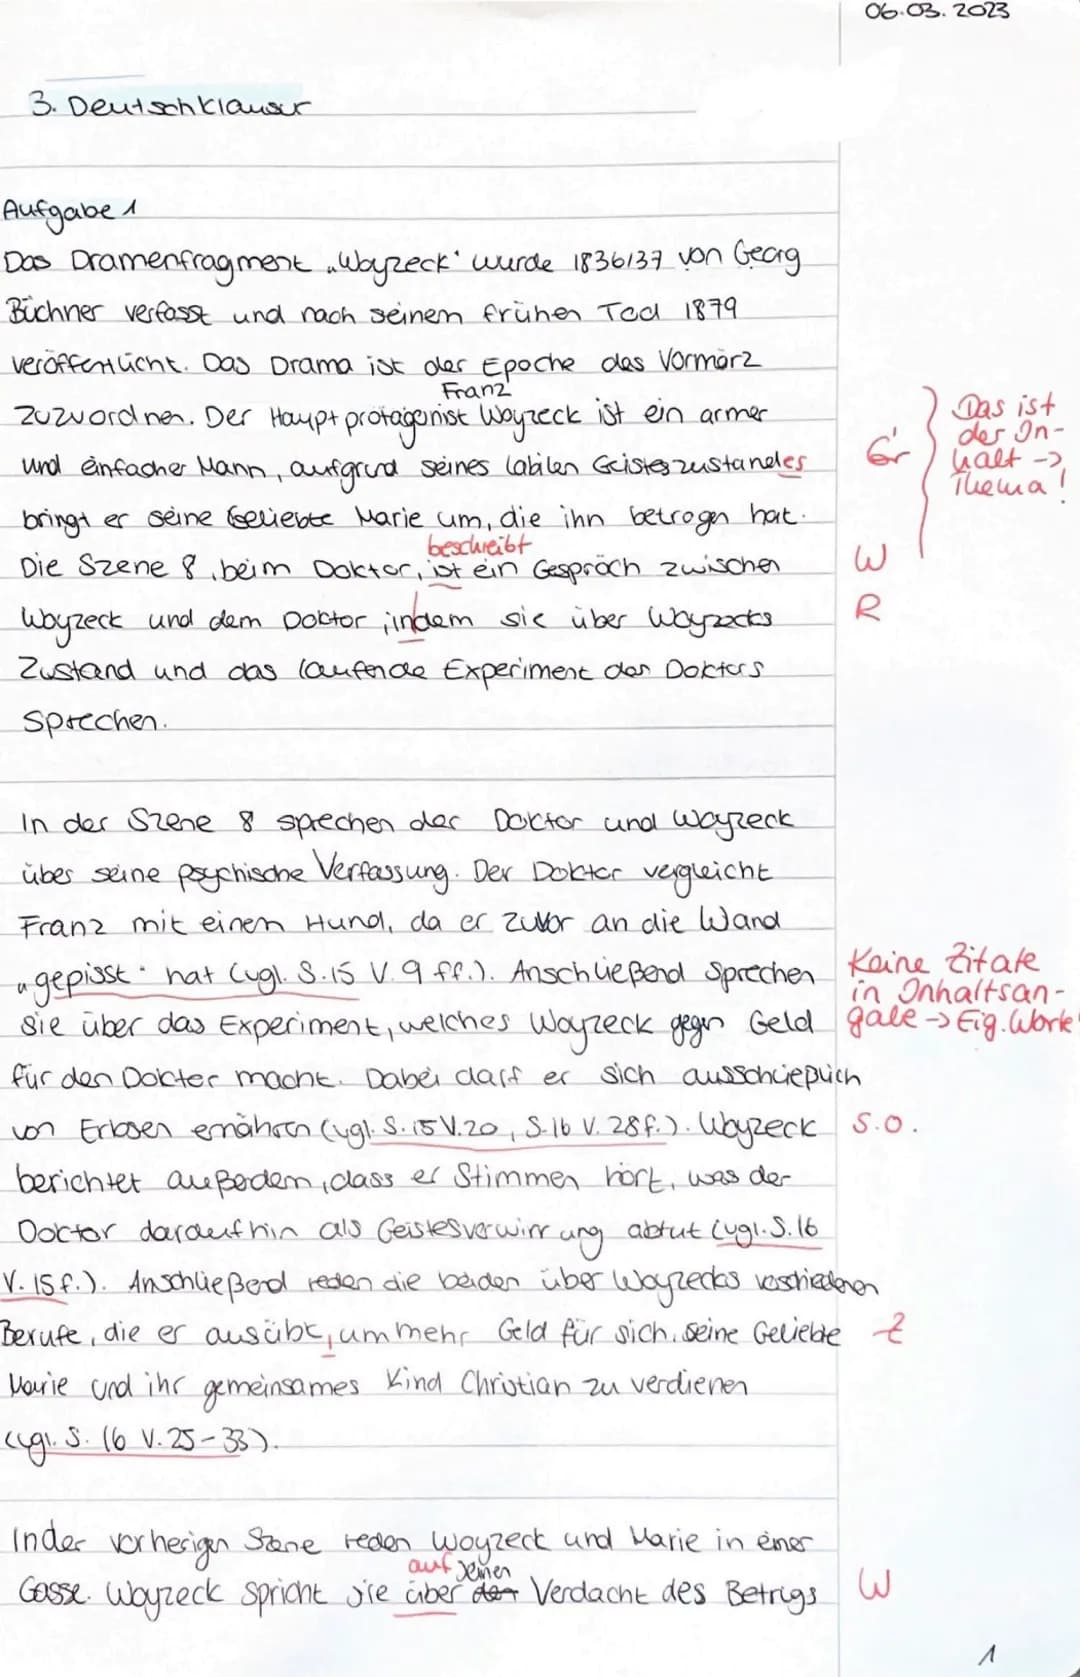 06.03.2023
3. Deutschklausur
Aufgabe 1
Das Dramenfragment „Woyzeck" wurde 1836/37 von Georg
Büchner verfasst und nach seinem frühen Tod 1879
veröffentlicht. Das Drama ist der Epoche des Vormärz
Franz
zuzuordnen. Der Hauptprotagonist Woyzeck ist ein armer
und einfacher Mann, aufgrund seines labilen Geisteszustandes
bringt er seine Geliebte Marie um, die ihn betrogen hat.
Gr
Das ist
der In-
halt ->
Thema!
beschreibt
Die Szene 8, beim Doktor, ist ein Gespräch zwischen W
Woyzeck und dem Doktor, indem sie über Woyzecks R
Zustand und das laufende Experiment des Doktors
sprechen.
In der Szene 8 sprechen der Doktor und Woyzeck
über seine psychische Verfassung. Der Doktor vergleicht
Franz mit einem Hund, da er zuvor an die Wand
„gepisst" hat (vgl. S.15 V.9 ff.). Anschließend sprechen
sie über das Experiment, welches Woyzeck gegen Geld
Keine Zitate
in Inhaltsan-
gabe -> Eig. Worte
für den Doktor macht. Dabei darf er sich ausschließlich
von Erbsen ernähren (vgl. S.15 V.20, S.16 V.28f.). Woyzeck s.o.
berichtet außerdem, dass er Stimmen hört, was der
Doktor daraufhin als Geistesverwirrung abtut (vgl. S.16
V.15f.). Anschließend reden die beiden über Woyzecks verschiedenen
Berufe, die er ausübt, um mehr Geld für sich, seine Geliebte Z
Marie und ihr gemeinsames Kind Christian zu verdienen
(vgl. S. 16 V.25-33).
In der vorherigen Szene reden Woyzeck und Marie in einer
auf seinen
Gasse. Woyzeck spricht sie über den Verdacht des Betrugs W
1